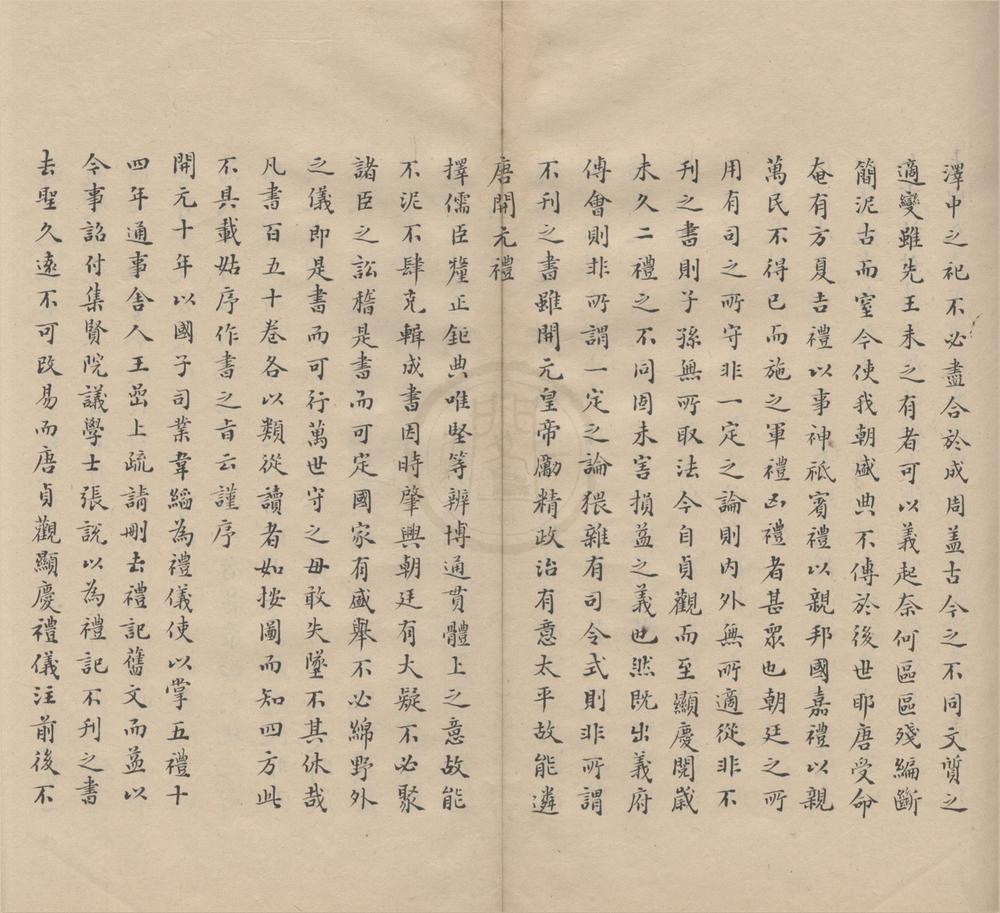 澤中之祀不必盡合於成周盖古今之不同文質之
適變雖先王未之有者可以義起奈何區區殘編斷
簡泥古而窒今使我朝盛典不傳於後世耶唐受命
奄有方夏吉禮以事神祗賓禮以親邦國嘉禮以親
萬民不得已而施之軍禮凶禮者甚衆也朝廷之所
用有司之所守非一定之論則内外無所適從非不
刊之書則子孫無所取法今自貞觀而至顯慶閱歲
未久二禮之不同固未害損益之義也然既出義府
傅會則非所謂一定之論猥雜有司令式則非所謂
不刊之書雖開元皇帝勵精政治有意太平故能遴
唐開元禮
擇儒臣釐正鉅典唯堅等辨博通貫體上之意故能
不泥不肆克輯成書因時肇興朝廷有大疑不必聚
諸臣之訟稽是書而可定國家有盛舉不必綿野外
之儀即是書而可行萬世守之毋敢失墜不其休哉
凡書百五十卷各以類從讀者如按圖而知四方此
不具載姑序作書之旨云謹序
開元十年以國子司業韋縚為禮儀使以掌五禮十
四年通事舍人王嵒上疏請刪去禮記舊文而益以
今事詔付集賢院議學士張說以為禮記不刊之書
去聖久遠不可改易而唐貞觀顯慶禮儀注前後不